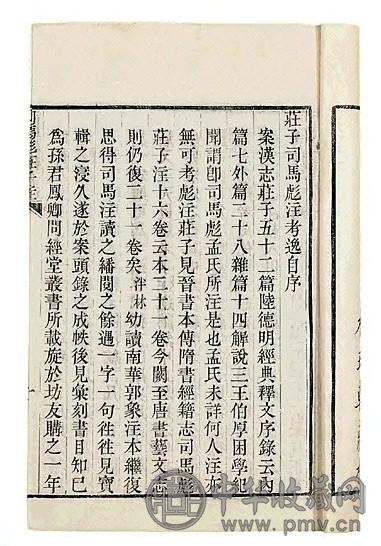 莊子司馬彪注考逸自序
案漢志莊子五十二篇陸德明經典釋文序錄云內
篇七外篇二十八雜篇十四解說三王伯厚困學紀
聞謂卽司馬彪孟氏所注是也孟氏未詳何人注亦
無可考彪注莊子見晉書本傳隋書經籍志司馬彪
莊子注十六卷云本二十一卷今闕至唐書藝文志
則仍復二十一卷矣泮林幼讀南華郭象注本繼復
思得司馬注讀之繙閱之餘遇一字一句徃徃見寶
輯之寖久遂於案頭錄之成帙後見彙刻書目知已
爲孫君鳳卿問經堂叢書所載旋於坊友購之一年
中华收藏网
www.pmv.cn